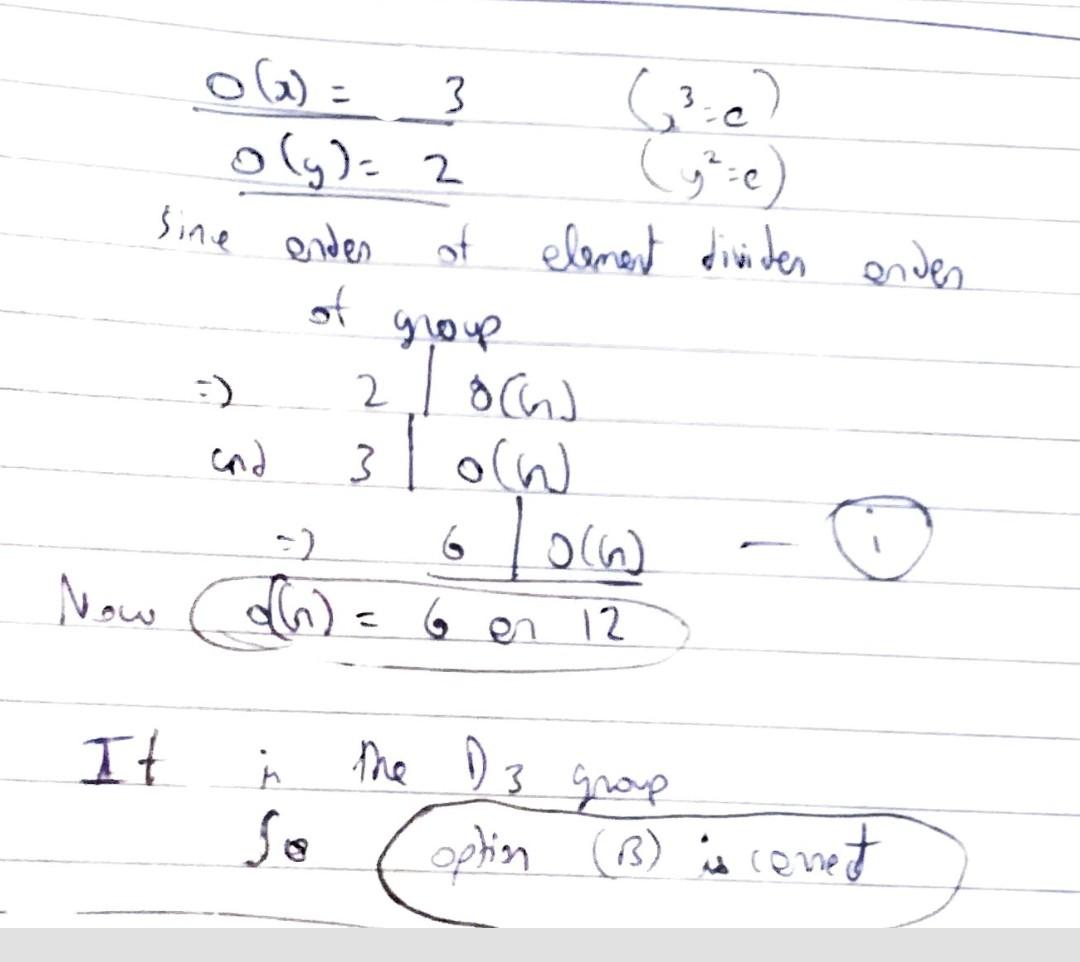 O(x) = 3 (x³=e)
O(y) = 2 (y²=e)
Since order of element divides order
of group
=) 2 | O(G)
and 3 | O(G)
=) 6 | O(G) — (i)
Now O(G) = 6 or 12
It is the D3 group
So option (B) is correct